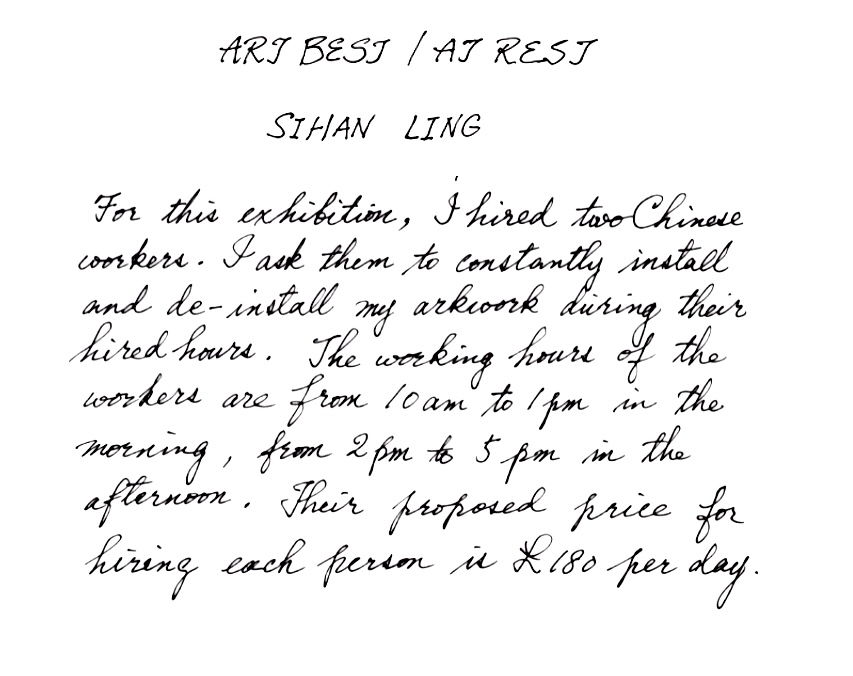 ART BEST / AT REST
SIHAN LING
For this exhibition, I hired two Chinese
workers. I ask them to constantly install
and de-install my arkwork during their
hired hours. The working hours of the
workers are from 10 am to 1 pm in the
morning, from 2 pm to 5 pm in the
afternoon. Their proposed price for
hiring each person is £180 per day.